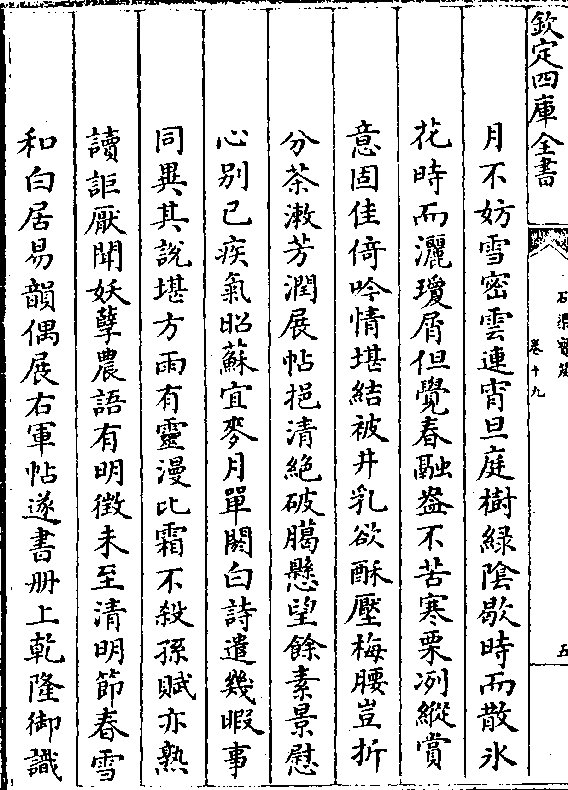 欽定四庫全書
卷十九
五
月不妨雪密雲連宵旦庭樹綠陰歇時而散氷
花時而灑瓊屑但覺春融盎不苦寒栗冽縱賞
意固佳倚吟情堪結被井乳欲酥壓梅腰豈折
分茶漱芳潤展帖挹清絶破臈懸望餘素景慰
心别已疾氣昭蘇宜麥月單閼白詩遣幾暇事
同異其說堪方雨有靈漫比霜不殺孫賦亦熟
讀詎厭聞妖孽農語有明徴未至清明節春雪
和白居易韻偶展右軍帖遂書册上乾隆御識